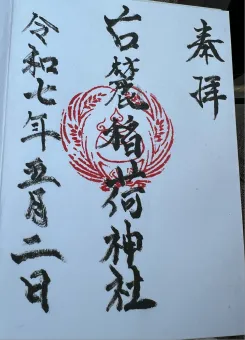 奉拝
台麓稲荷神社
令和七年五月二日